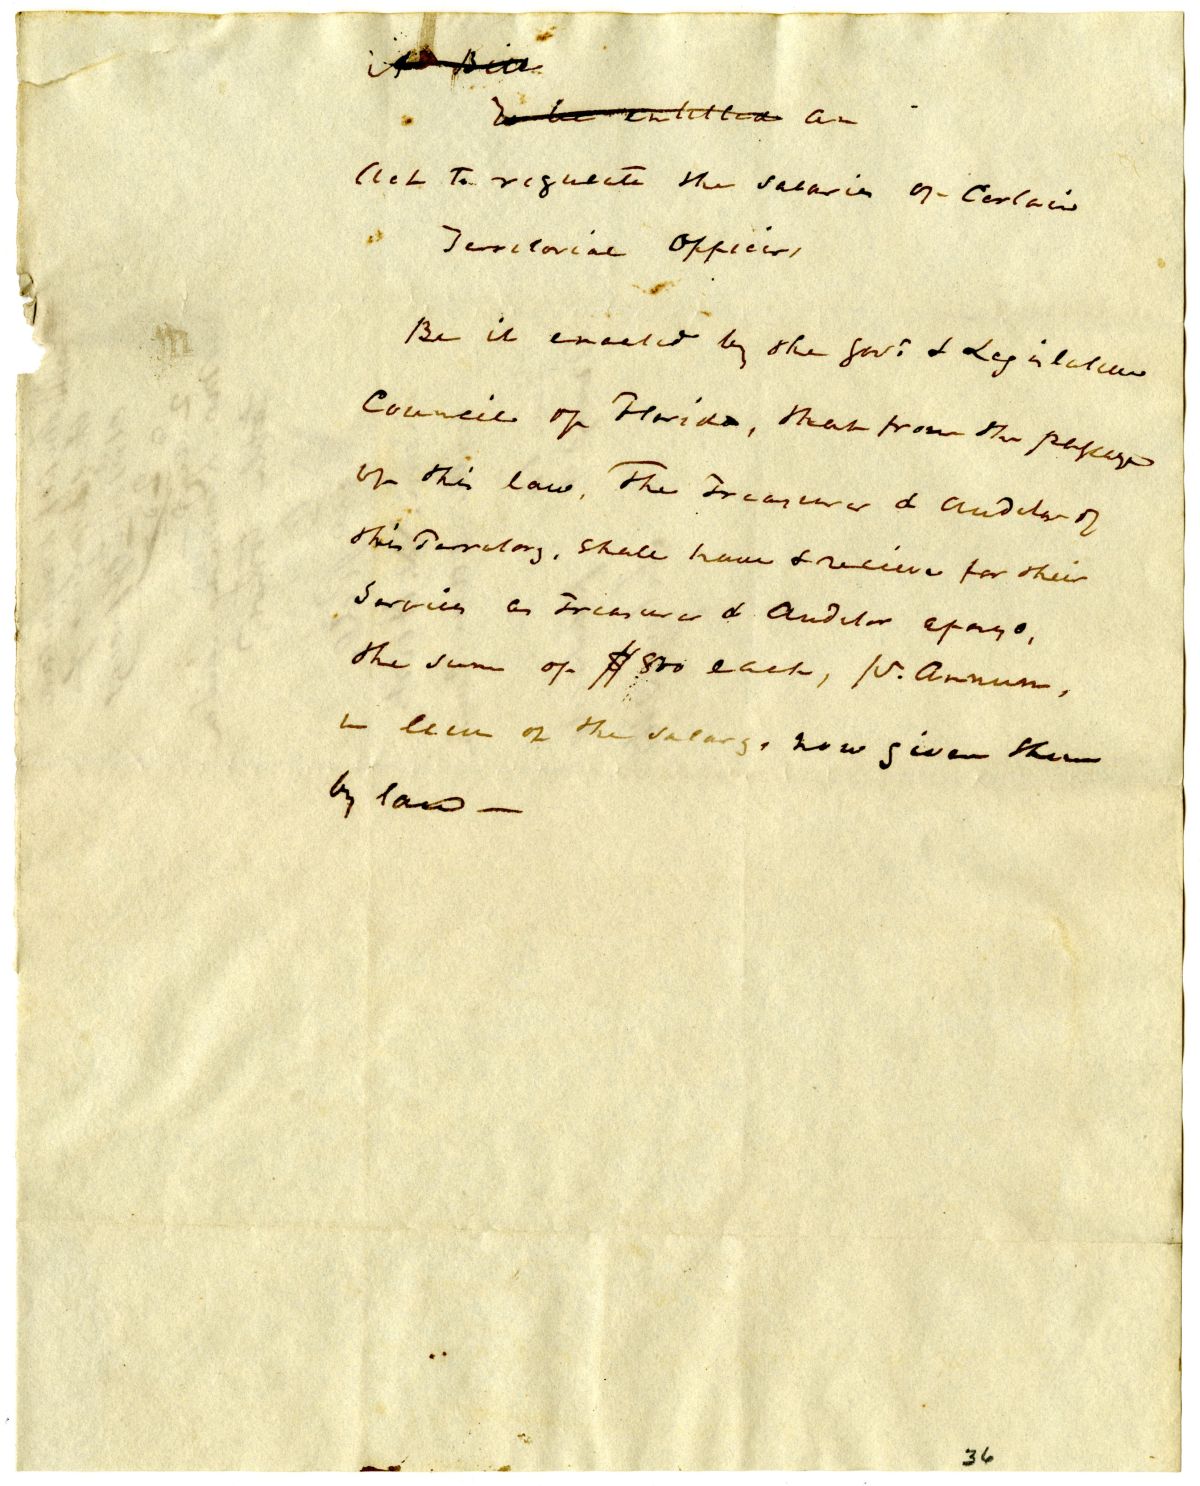 A Bill
To be entitled An
Act To regulate the salaries of Certain
Territorial Officers,
Be it enacted by the Govr. & Legislative
Council of Florida, that from the passage
of this law, The Treasurer & Auditor of
this Territory, shall have & recieve for their
Services as Treasurer & Auditor
the sum of $800 each, Pr. Annum,
in lieu of the salary, now given them
by law —
36